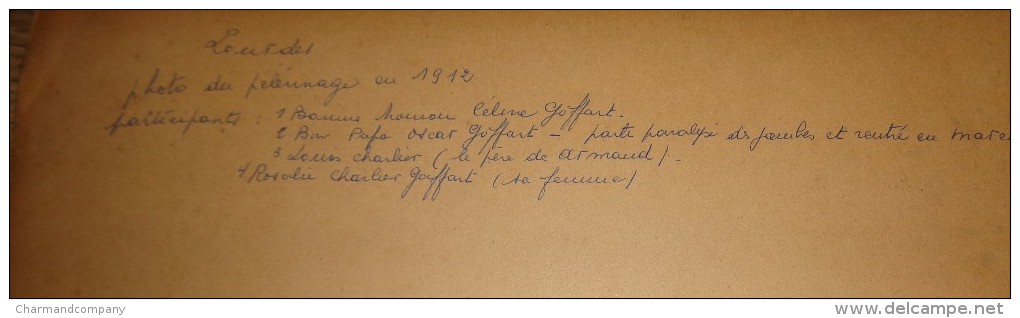 Lourdes
photo du pélérinage en 1912
participants : 1 Bonne Maman Céline Goffart.
2 Bon Papa Oscar Goffart - parti paralysé des jambes et rentré en marc
3 Louis Charlier (le père de Armand).
4 Rosalie Charlier Goffart (sa femme)
Charmandcompany
www.delcampe.net